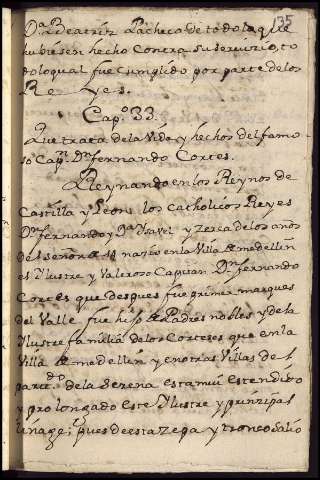 135
Dª Beatriz Pacheco de todo lo que
hubiesen hecho contra su servizio, to
do lo qual fue cumplido por parte de los
Reyes.
Capº 33.
Que trata de la Vida y hechos del famo
so Capⁿ Dⁿ fernando Cortes.
Reynando en los Reynos de
Castilla y Leon los Catholicos Reyes
Dⁿ fernando y Dª Ysavel y zerca de los años
del señor de nazio en la Villa de medellin
el Ylustre y Valeroso Capitan Dⁿ fernando
Cortes que despues fue primer marques
del Valle fue hijo de Padres nobles y de la
Ylustre familia de los Corteses que en la
Villa de medellin y en otras Villas del
partᵈᵒ de la Serena esta mui estendido
y prolongado este Ylustre y prinzipal
linage, pues de esta zepa y tronco salio